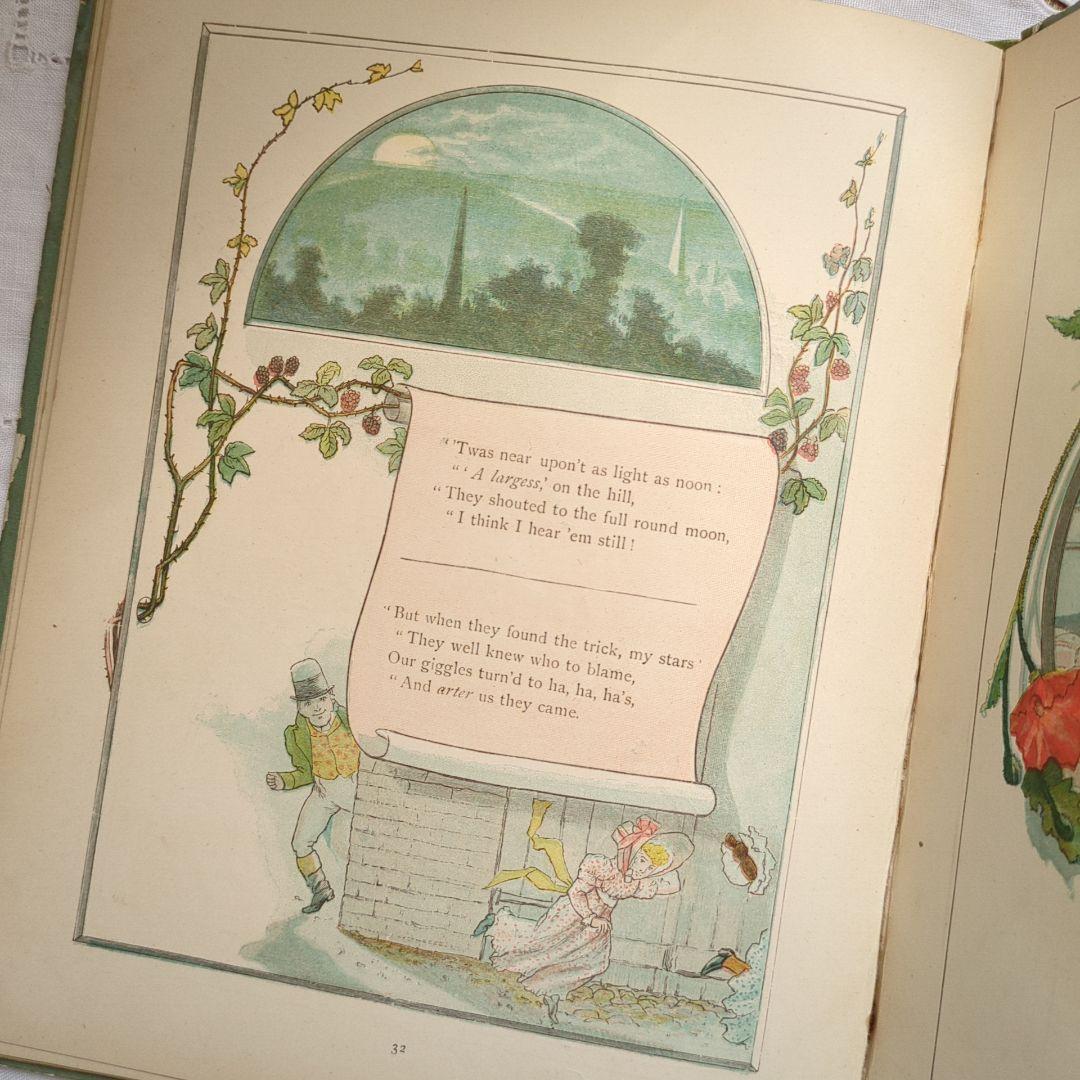 “ 'Twas near upon't as light as noon :
“ ‘ A largess,’ on the hill,
“ They shouted to the full round moon,
“ I think I hear 'em still !
“ But when they found the trick, my stars
“ They well knew who to blame,
Our giggles turn'd to ha, ha, ha's,
“ And arter us they came.
32